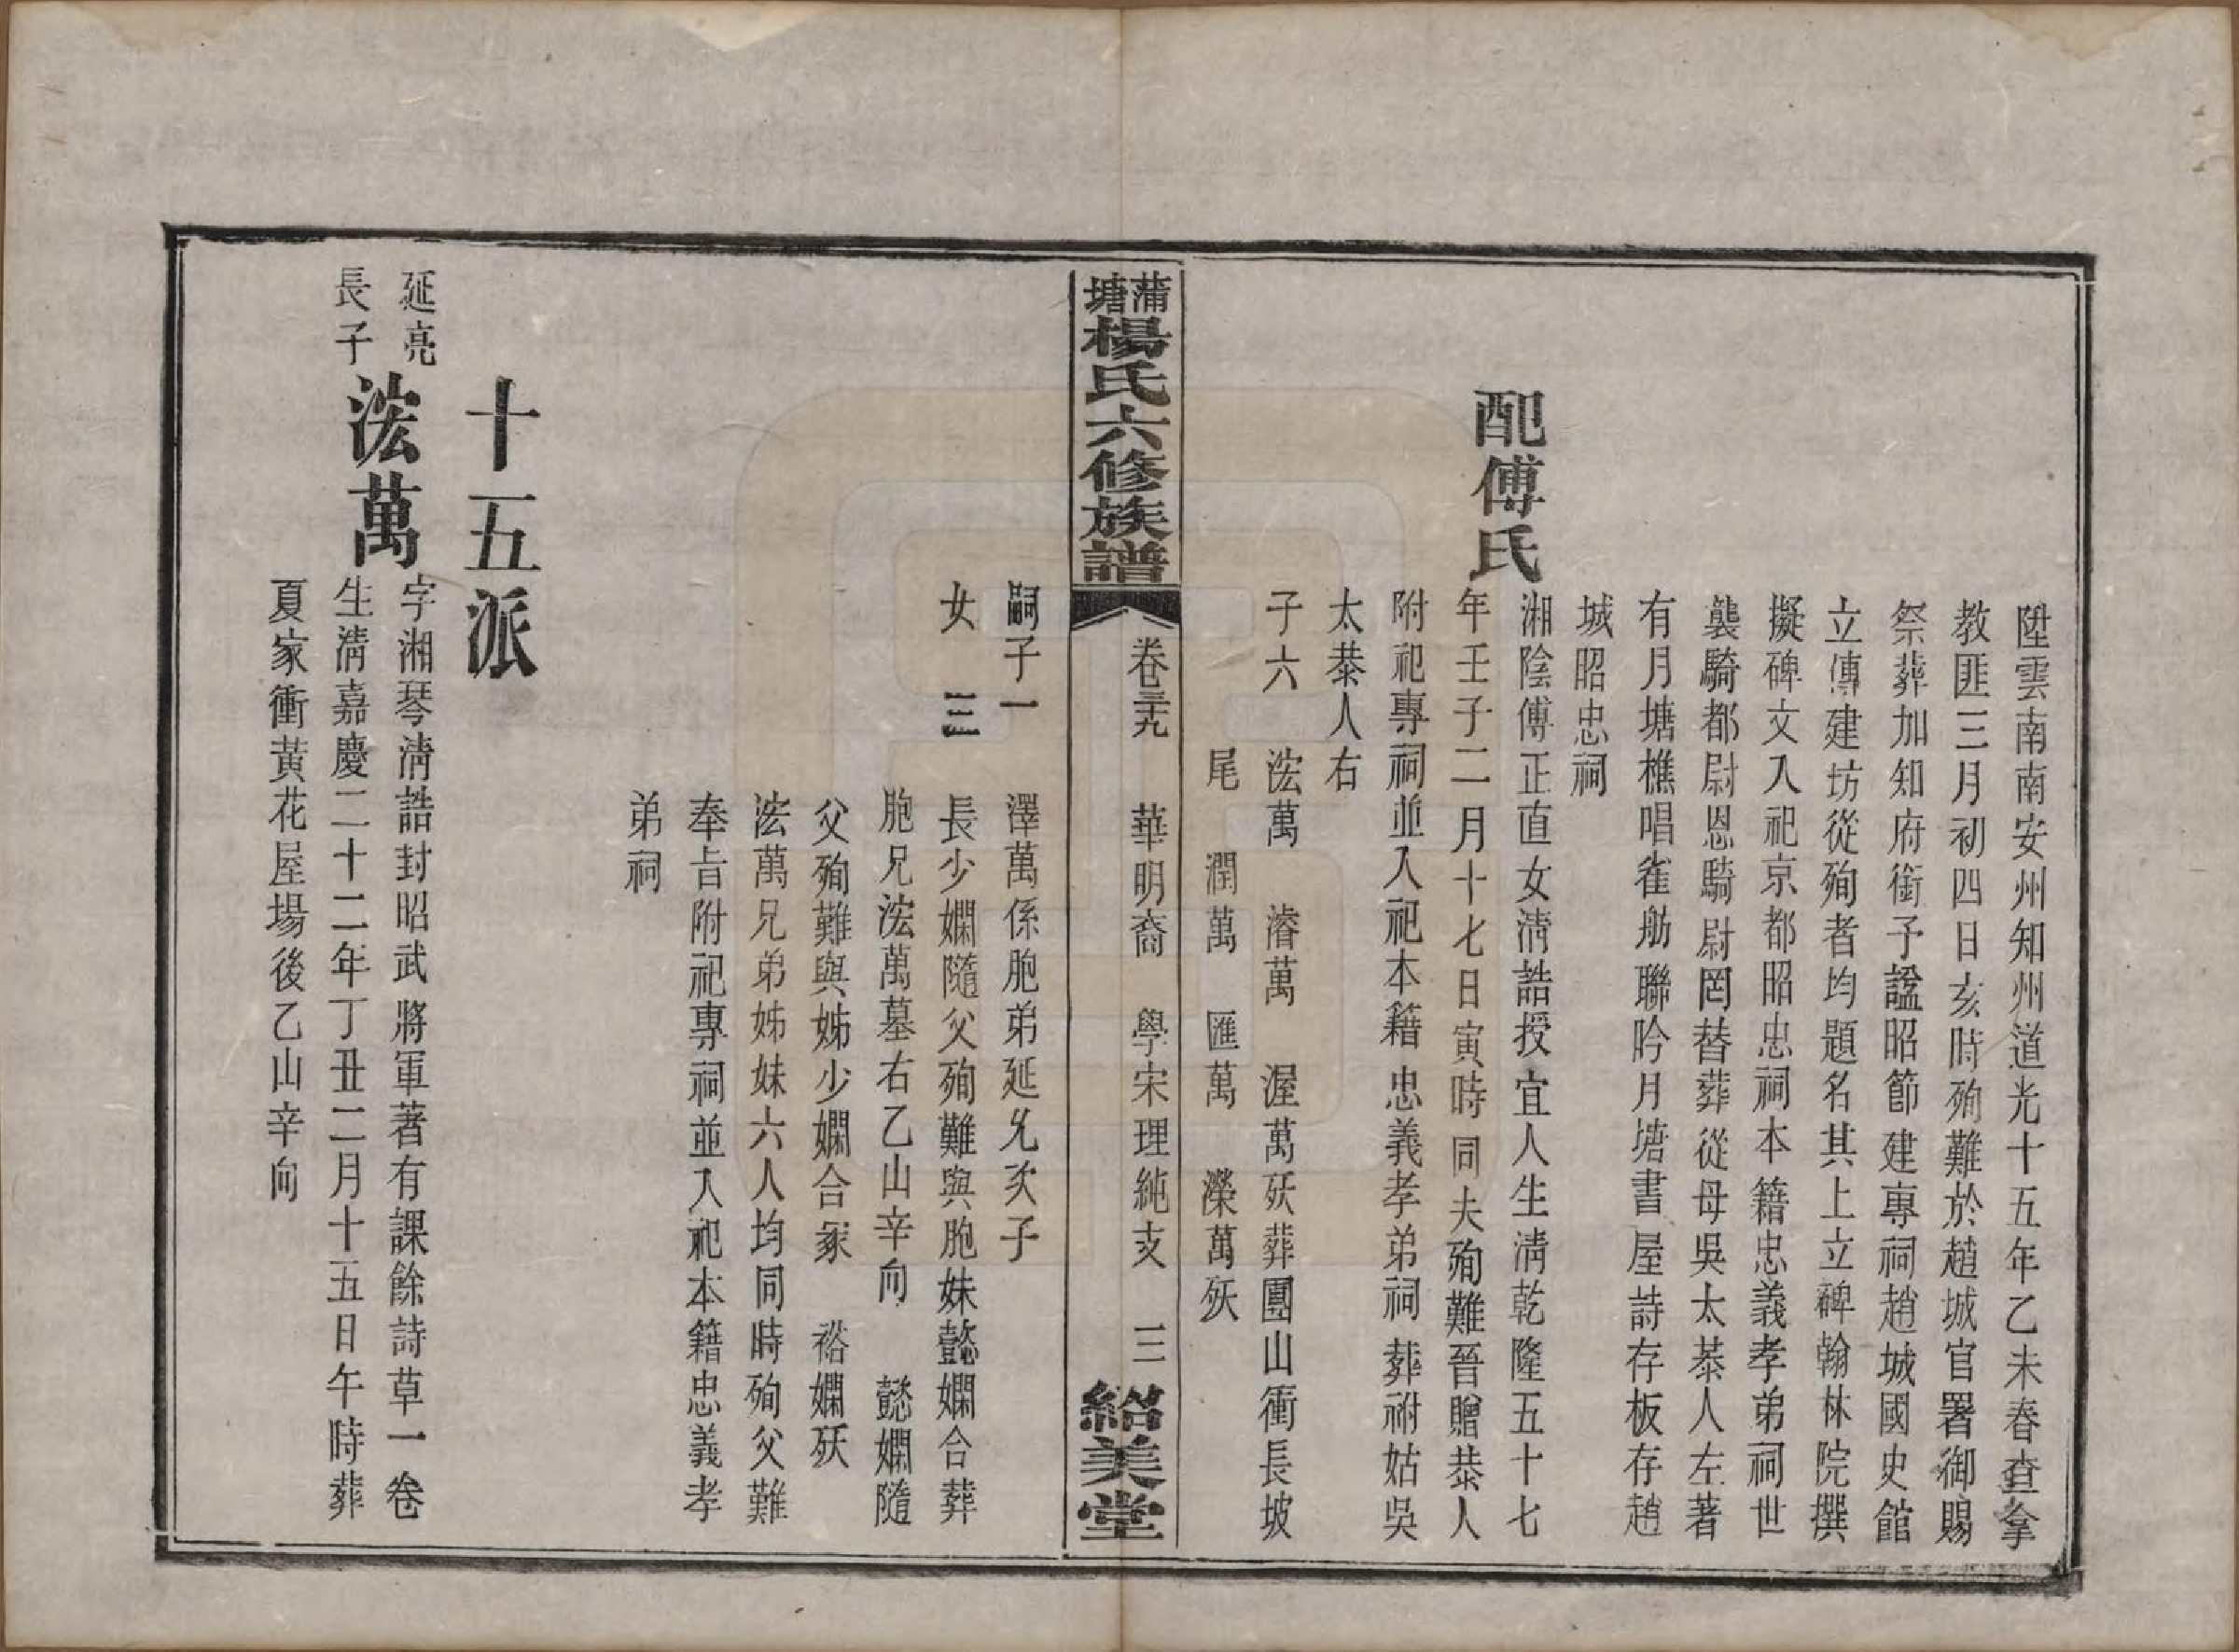 陞雲南南安州知州道光十五年乙未春查拿
教匪三月初四日亥時殉難於趙城官署御賜
祭葬加知府銜予諡昭節建專祠趙城國史館
立傳建坊從殉者均題名其上立碑翰林院撰
擬碑文入祀京都昭忠祠本籍忠義孝弟祠世
襲騎都尉恩騎尉罔替葬從母吳太恭人左著
有月塘樵唱雀舫聯吟月塘書屋詩存板存趙
城昭忠祠
配傅氏
湘陰傅正直女淸誥授宜人生淸乾隆五十七
年壬子二月十七日寅時同夫殉難晉贈恭人
附祀專祠並入祀本籍忠義孝弟祠葬祔姑吳
太恭人右
子六 浤萬 濬萬 渥萬殀葬團山衝長坡
尾 潤萬 匯萬 濼萬殀
蒲塘楊氏六修族譜 卷三十九 華明裔 學宋理純支 三 紹美堂
嗣子一 澤萬係胞弟延允次子
女 三 長少嫻隨父殉難與胞妹懿嫻合葬
胞兄浤萬墓右乙山辛向 懿嫻隨
父殉難與姊少嫻合冢 裕嫻殀
浤萬兄弟姊妹六人均同時殉父難
奉旨附祀專祠並入祀本籍忠義孝
弟祠
十五派
延亮
長子
浤萬
字湘琴淸誥封昭武將軍著有課餘詩草一卷
生淸嘉慶二十二年丁丑二月十五日午時葬
夏家衝黃花屋場後乙山辛向